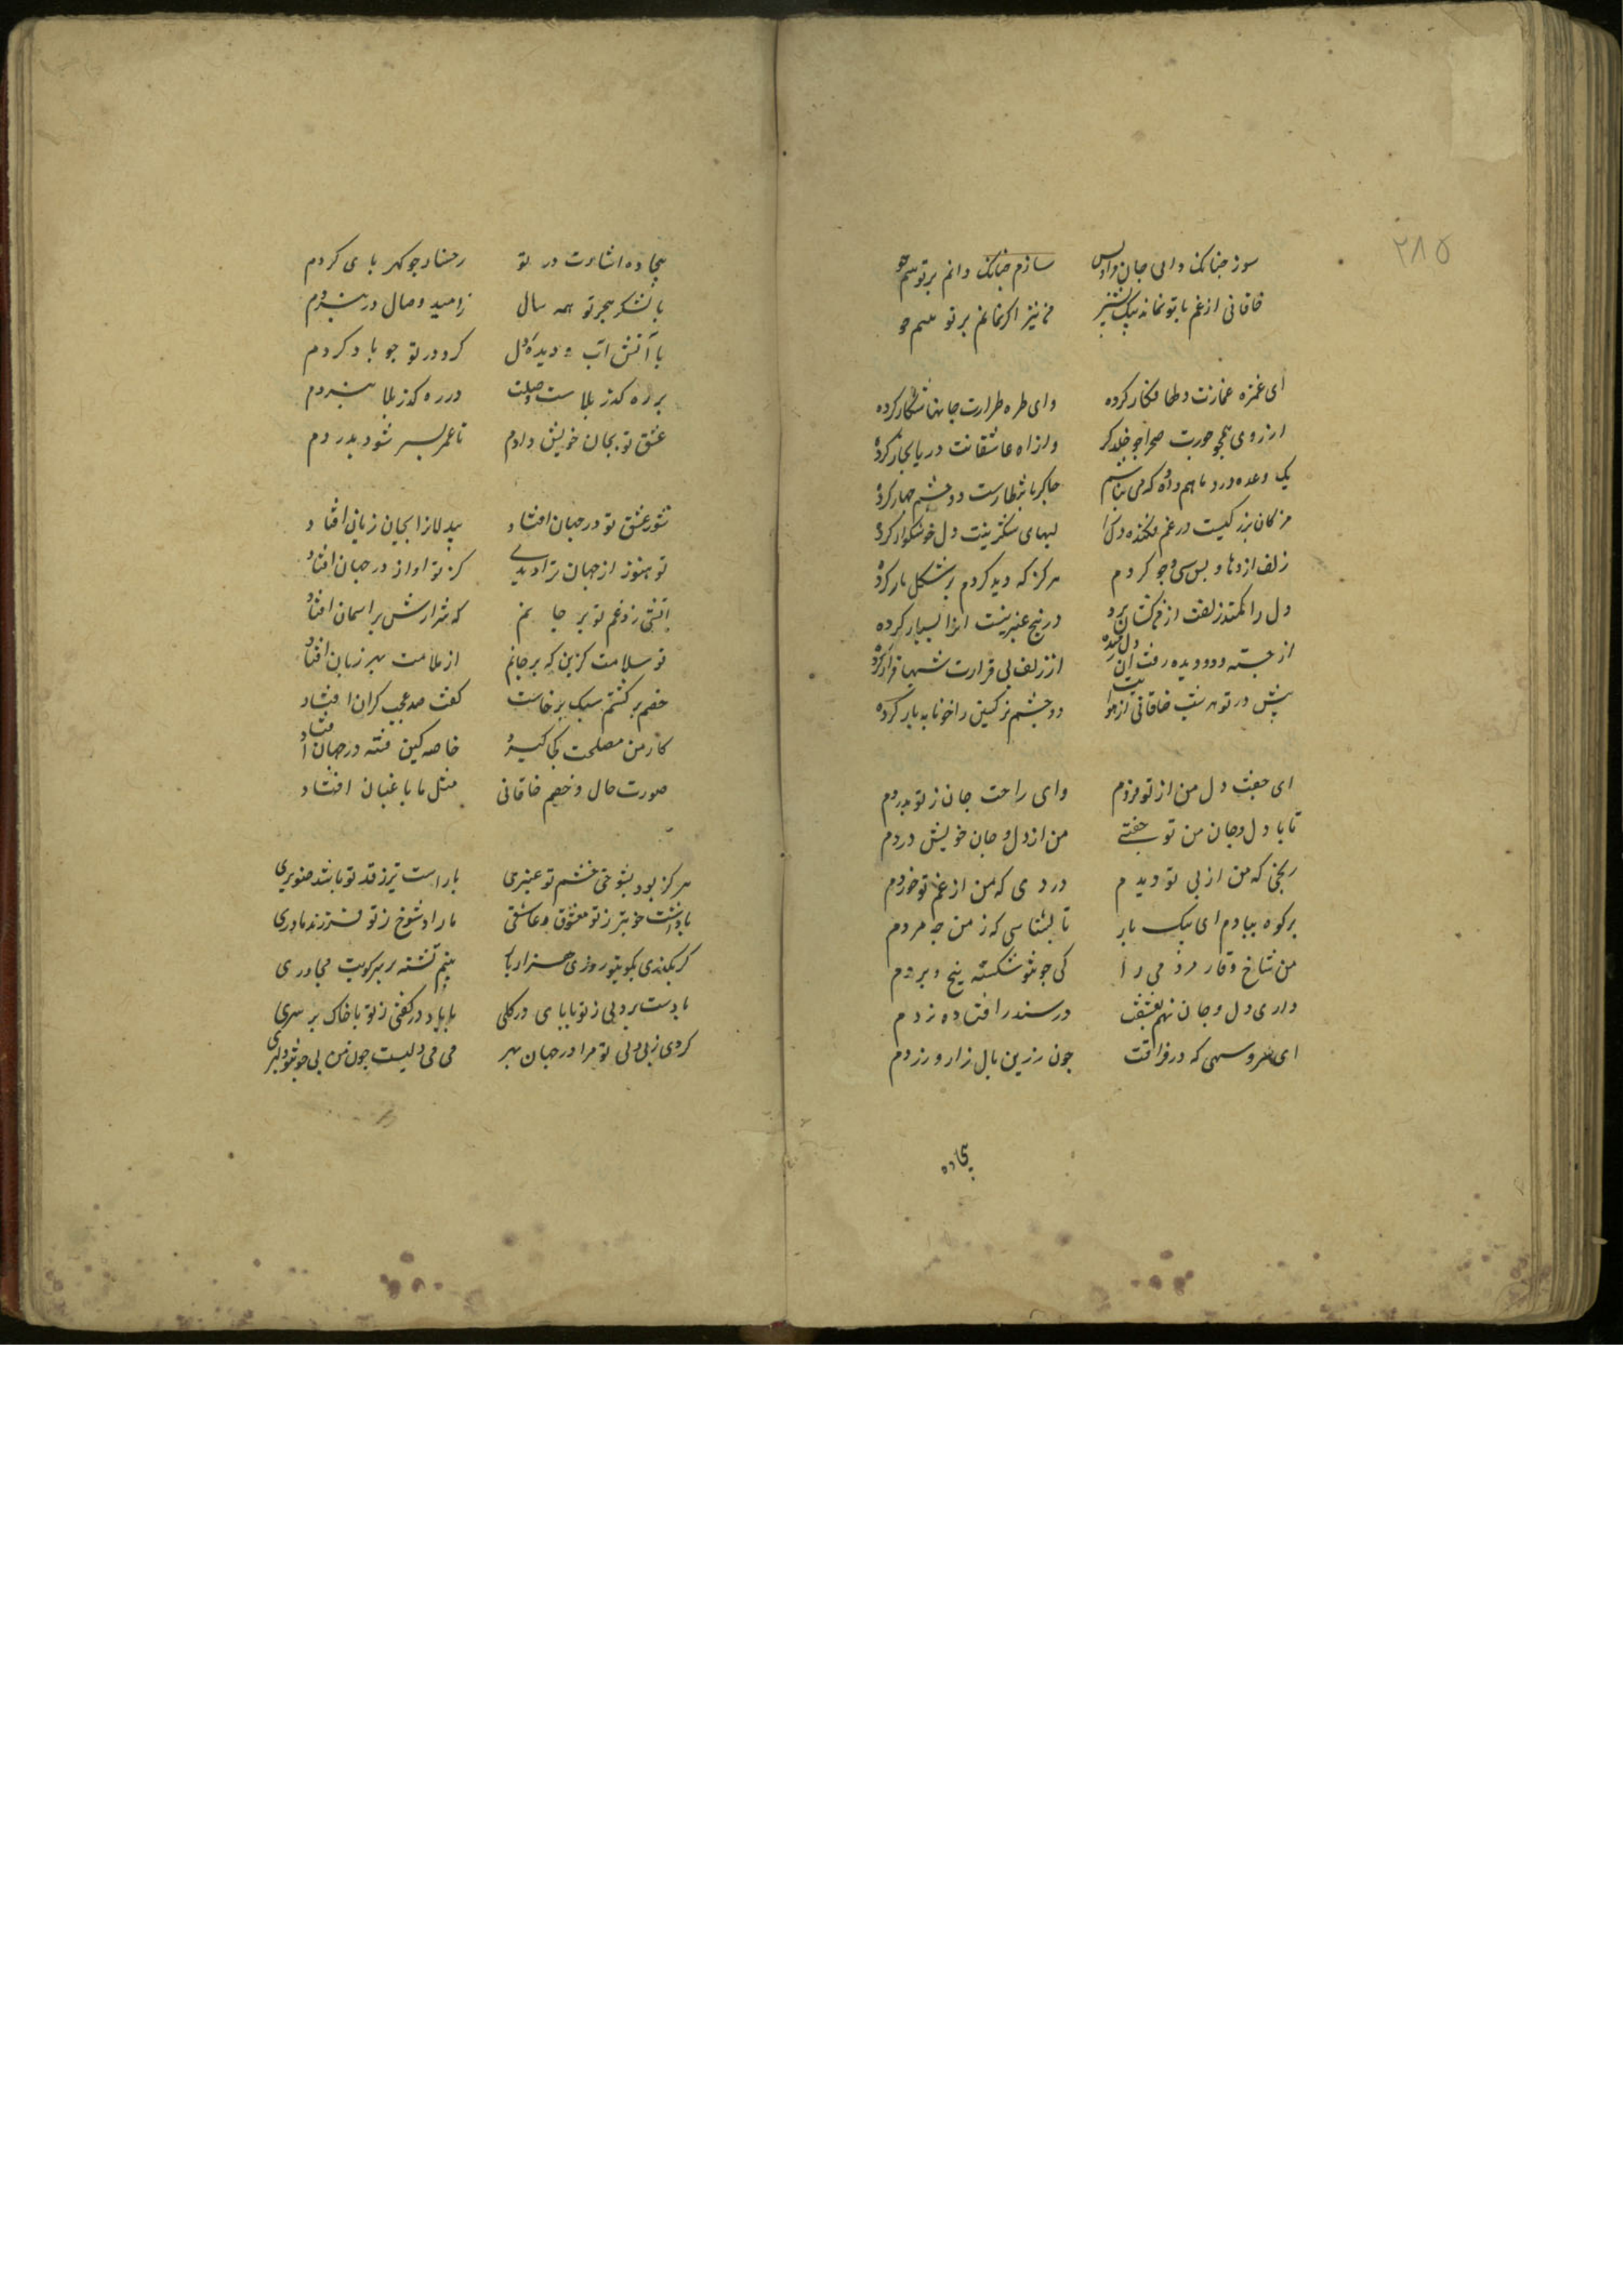 ۲۸۵
سوز چنانک دانی جان سازم چنانک دانم بر تو
خاقانی از غم با تو نماند یک من نیز اگر نمانم بر تو
ای غمزه غمازت دلها فکار کرده وای طره طرارت جانها شکار کرده
ارزوی همچو حورت صحرا چو خلد کرده وز اه عاشقانت دریا بخار کرده
یک وعده درد ماهم داده که می چاکر بانتظارت دو چشم چهار کرده
مژکان نرکسیت در غم فکنده دل لبهای شکرینت دل خوشکوار کرده
زلف اژدها و بس سی وجو کردم هرکز که دید کژدم بر شکل مار کرده
دل را کمند زلفت از من کشان برده در زنخ عنبرینت انرا کرده
از خسته دود دیده رفت آن دل رمیده از زلف بی قرارت شبها قرار کرده
پیش در تو هر شب خاقانی از هوایت دو چشم نرکسین را خونابه بار کرده
ای جفت دل من از تو فردم وای راحت جان ز تو بدردم
تا با دل و جان من تو جفتی من از دل و جان خویش فردم
رنجی که من از پی تو دیدم دردی که من از غم تو خوردم
بر کوه بیازمای یک بار تا بشناسی که ز من چه مردم
من شاخ وفا مردمی را کی چون تو شکسته بیخ و بردم
داری دل و جان نهم بعشقت در ششدر افتاده نردم
ای سرو سهی که در فراقت چون زرین نال زار و زردم
بیجاده
بیجاده اشارت در تو رخسار چو کهربای کردم
با لشکر هجر تو همه سال ز امید وصال در نبردم
با آتش آب دیده و دل کرد در تو چو باد کردم
بر ره کذر بلاست وصلت در ره کذر بلا نبردم
عشق تو بجان خویش دادم تا عمر بسر شود بدردم
شور عشق تو در جهان افتاد بیدلانرا بجان زیان افتاد
تو هنوز از جهان نزادیدی کز تو اواز در جهان افتاد
آتشی زد غم تو بر جانم که شرارش بر اسمان افتاد
تو سلامت کزین که بر جانم از ملامت بهر زبان افتاد
خصم بر کشتنم سبک برخاست کفت صد عجب کران افتاد
کار من مصلحت کجا کیرد خاصه کین فتنه در جهان افتاد
صورت حال و خصم خاقانی مثل ما باغبان افتاد
هرکز بود بشوخی چشم تو عبهری یا راست تر ز قد تو باشد صنوبری
یا داشت خوبتر ز تو معشوق عاشقی یا زاد شوخ تر ز تو فرزند مادری
کر بکذری بکوی تو روزی هزار بار بینم نشسته بر سر کویت مجاوری
یا دست بردلی ز تو یا پای در کلی یا باد در کفی ز تو یا خاک بر سری
کردی ز بیدلی تو مرا در جهان سمر می می دلیست چون من بی چون تو دلبری